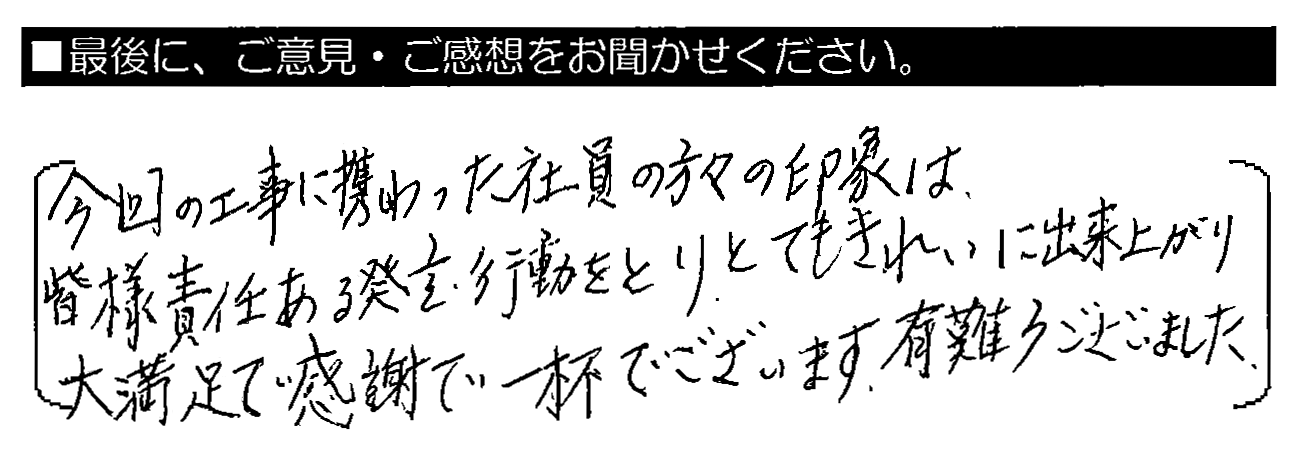 ■最後に、ご意見・ご感想をお聞かせください。
今回の工事に携わった社員の方々の印象は、
皆様責任ある発言・行動をとり、とてもきれいに出来上がり
大満足で感謝で一杯でございます。有難うございました。